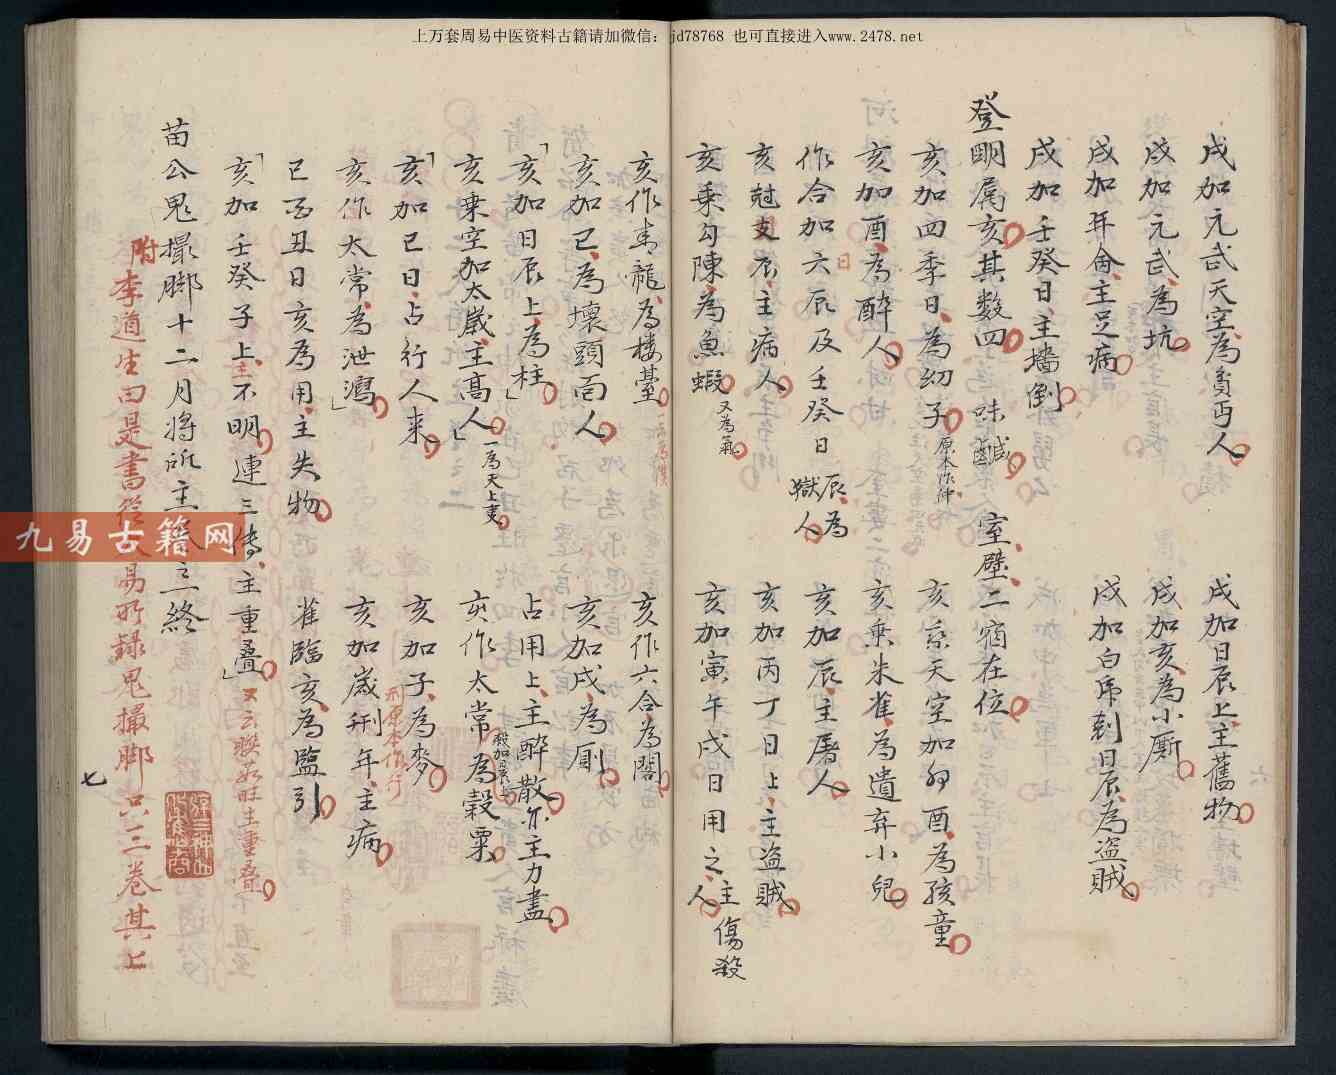 上万套周易中医资料古籍请加微信：jd78768 也可直接进入www.2478.net
戌加元武天空為貧丐人
戌加日辰上主舊物
戌加元武為坑
戌加亥為小廁
戌加年命主足病
戌加白虎刺日辰為盜賊
戌加壬癸日主墻倒
登明属亥其數四 味鹹 室壁二宿在位
亥加四季日為幼子 原本作仲
亥乘天空加卯酉為孩童
亥加酉為醉人
亥乘朱雀為遺弃小兒
作合加六辰及壬癸日 辰為獄人
日
亥加辰主屠人
亥尅支辰主病人
亥加丙丁日上主盜賊
亥乘勾陳為魚蝦 又為氣
亥加寅午戌日用之主傷殺人
亥作青龍為樓臺
亥作六合為閣
亥加巳為壞頭面人
亥加戌為厠
亥加日辰上為柱
占用上主醉散亦主力盡
亥乘空加太嵗主髙人 一為天上使
亥作太常為穀粟
亥加巳日占行人来
亥加子為麥
亥作太常為泄瀉
亥加嵗刑年主病
刑原本作行
巳酉丑日亥為用主失物
雀臨亥為監引
亥加壬癸子上主不明連三傳主重疊
苗公鬼撮脚十二月將所主
終
附李道生曰是書
易所錄鬼撮脚只三卷其上
七
九易古籍网